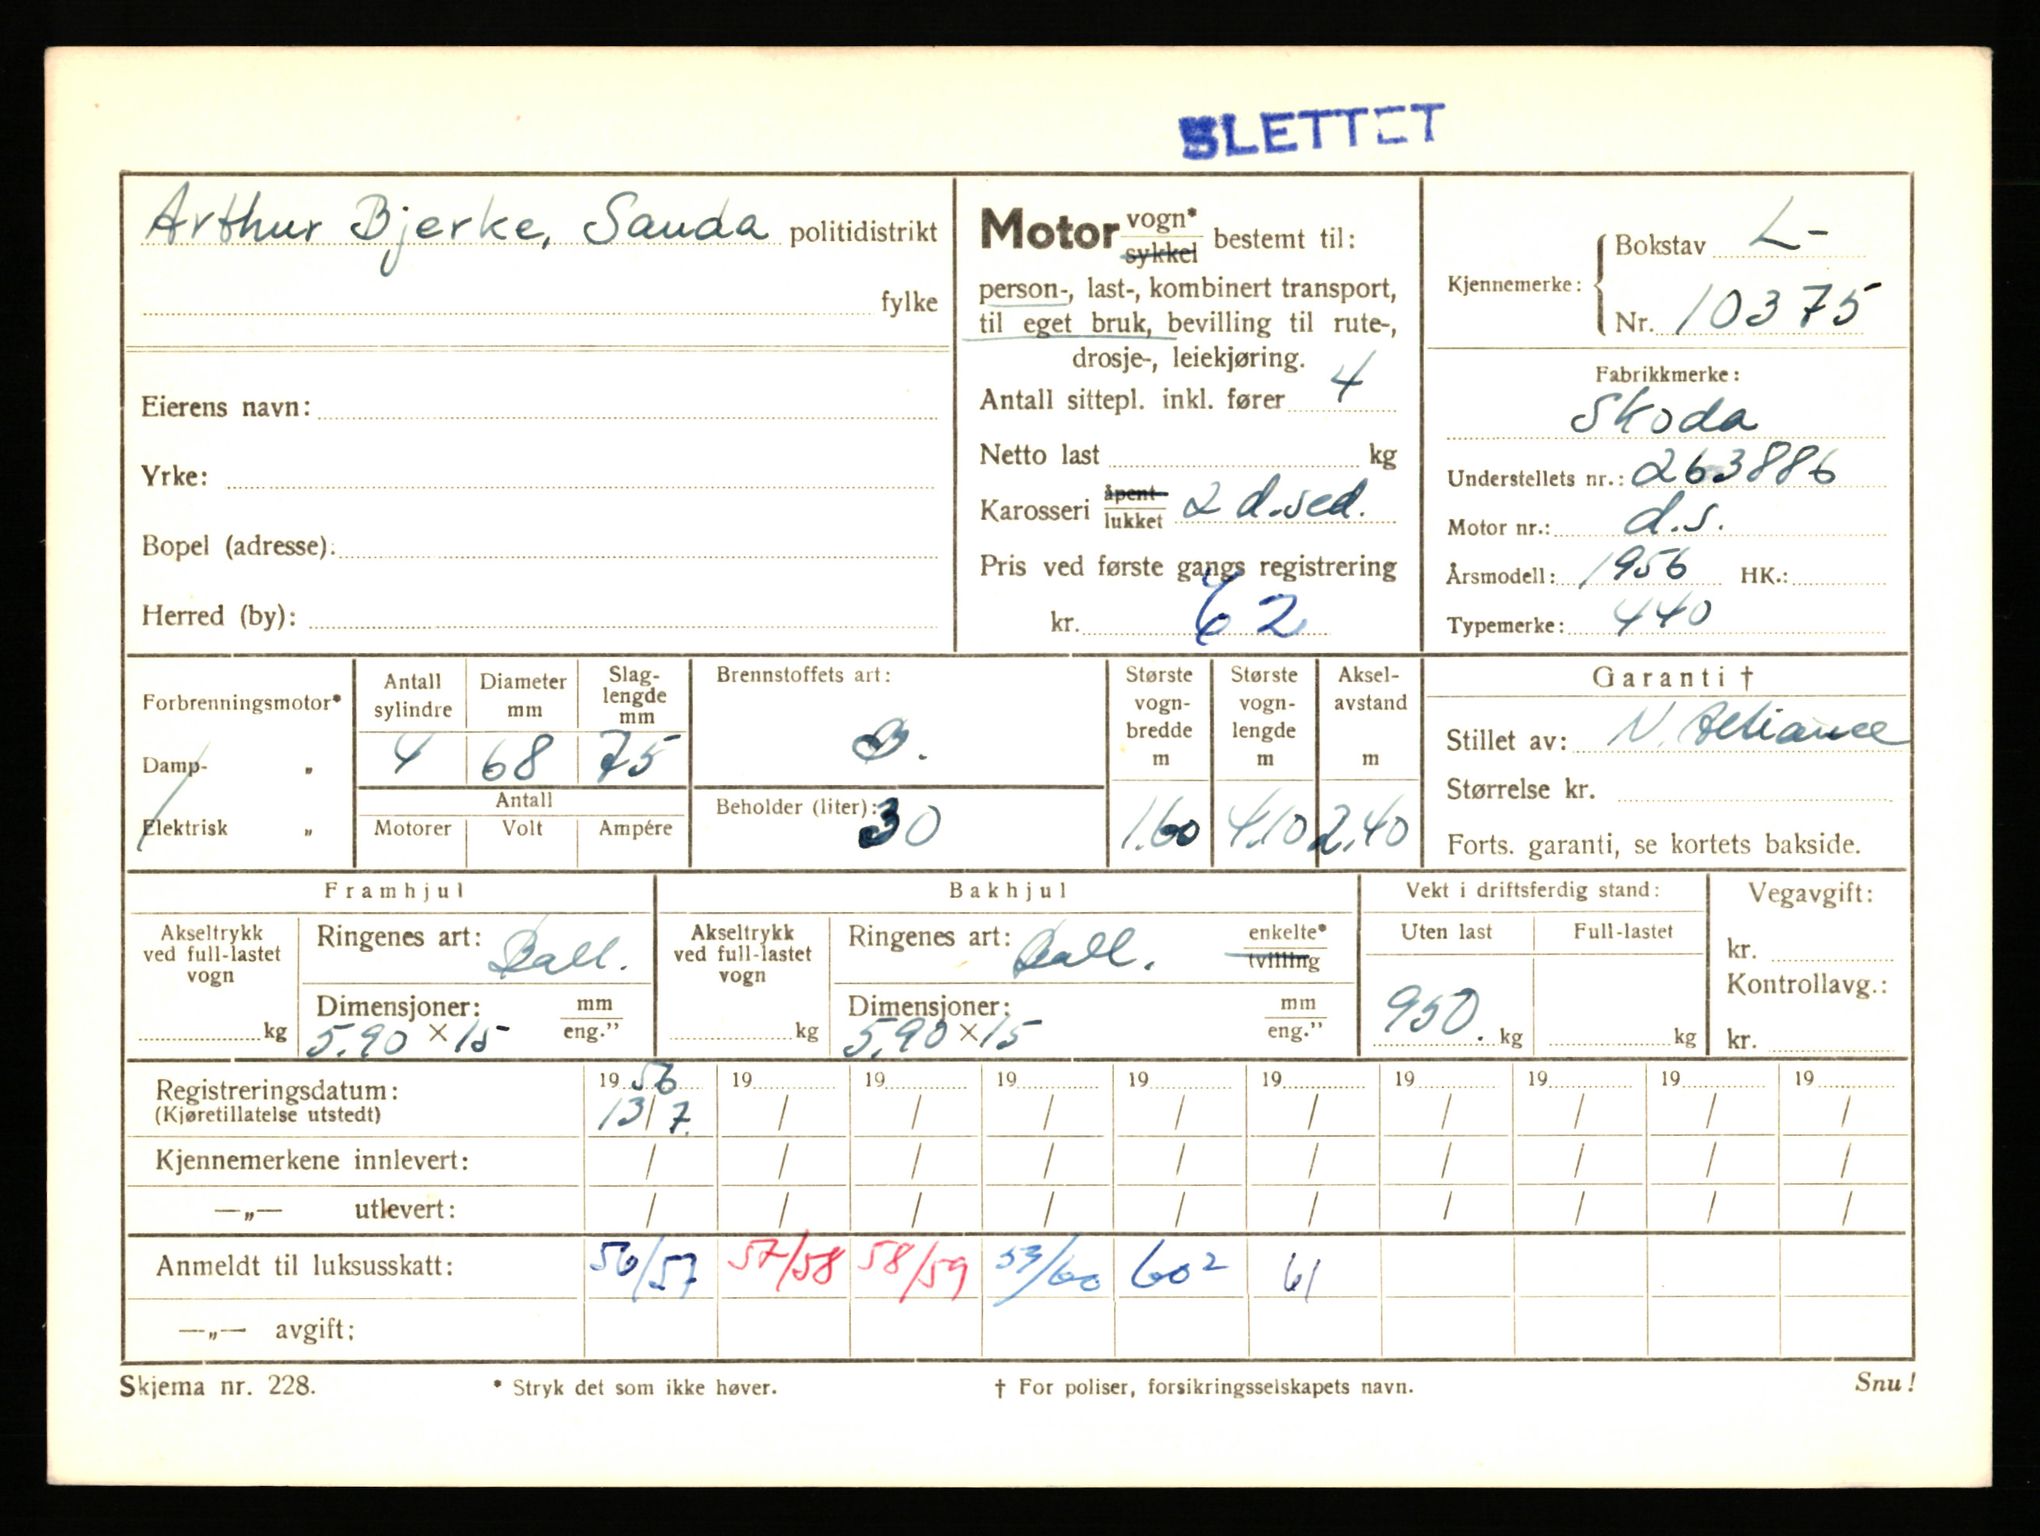 SLETTET
Arthur Bjerke, Sauda politidistrikt
fylke
Eierens navn:
Yrke:
Bopel (adresse):
Herred (by):
Motor vogn* sykkel bestemt til:
person-, last-, kombinert transport,
til eget bruk, bevilling til rute-,
drosje-, leiekjøring.
Antall sittepl. inkl. fører 4
Netto last kg
Karosseri åpent lukket 2 d.sed.
Pris ved første gangs registrering
kr. 62
Kjennemerke: Bokstav L-
Nr. 10375
Fabrikkmerke:
Skoda
Understellets nr.: 263886
Motor nr.: d.s.
Årsmodell: 1956 HK.:
Typemerke: 440
Forbrenningsmotor*
Damp- „
Elektrisk „
Antall sylindre Diameter mm Slag-lengde mm
4 68 75
Antall
Motorer Volt Ampére
Brennstoffets art:
B.
Beholder (liter): 30
Største vogn-bredde m
1.60
Største vogn-lengde m
4.10
Aksel-avstand m
2.40
Garanti †
Stillet av: N. Alliance
Størrelse kr.
Forts. garanti, se kortets bakside.
Framhjul
Akseltrykk ved full-lastet vogn
kg
Ringenes art: Ball.
Dimensjoner: mm eng.”
5.90 × 15
Bakhjul
Akseltrykk ved full-lastet vogn
kg
Ringenes art: Ball. enkelte* tvilling
Dimensjoner: mm eng.”
5.90 × 15
Vekt i driftsferdig stand:
Uten last Full-lastet
950. kg kg
Vegavgift:
kr.
Kontrollavg.:
kr.
Registreringsdatum: 1956 19 19 19 19 19 19 19 19 19
(Kjøretillatelse utstedt) 13/7. / / / / / / / / /
Kjennemerkene innlevert: / / / / / / / / / /
—„— utlevert: / / / / / / / / / /
Anmeldt til luksusskatt: 56/57 57/58 58/59 59/60 60² 61
—„— avgift:
Skjema nr. 228. * Stryk det som ikke høver. † For poliser, forsikringsselskapets navn. Snu!